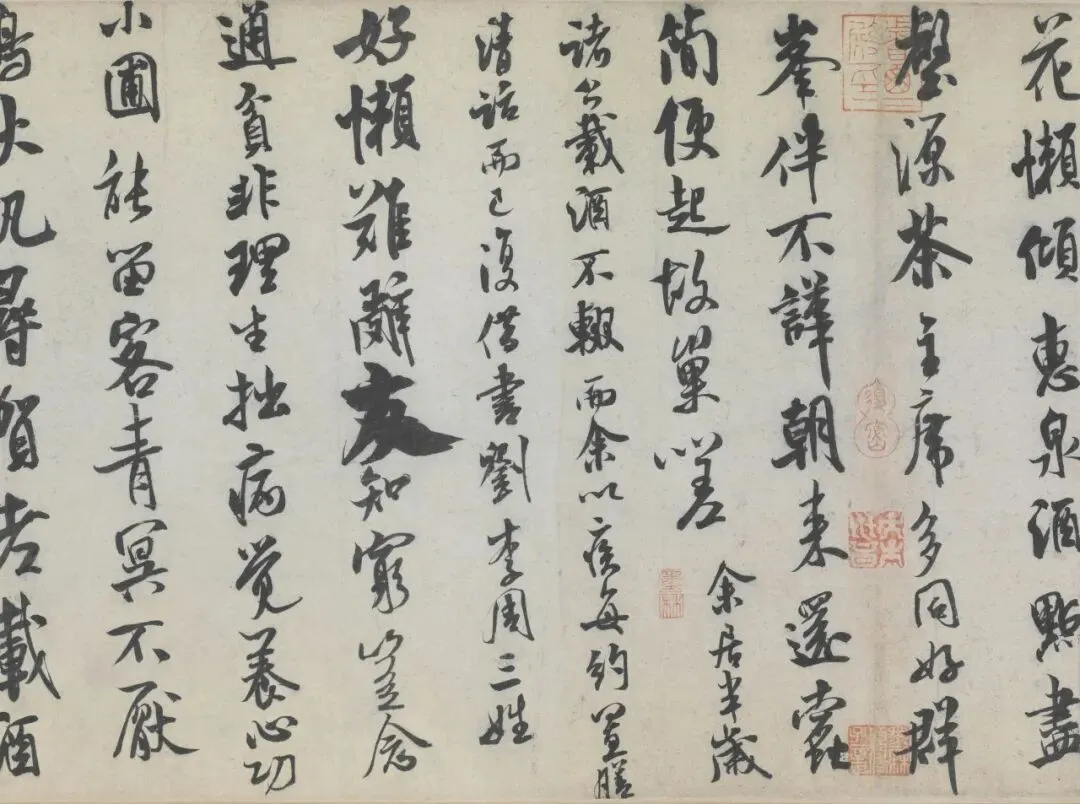 花懶傾惠泉酒點盡
壑源茶主席多同好群
峯伴不譁朝来還蠹
簡便起故巢嗟
余居半歲
諸公載酒不輟而余以疾每約置膳
清話而已復借書劉李周三姓
好懶難辭友知窮豈念
通貧非理生拙病覺養心功
小圃能留客青冥不厭
鴻秋帆尋賀老載酒